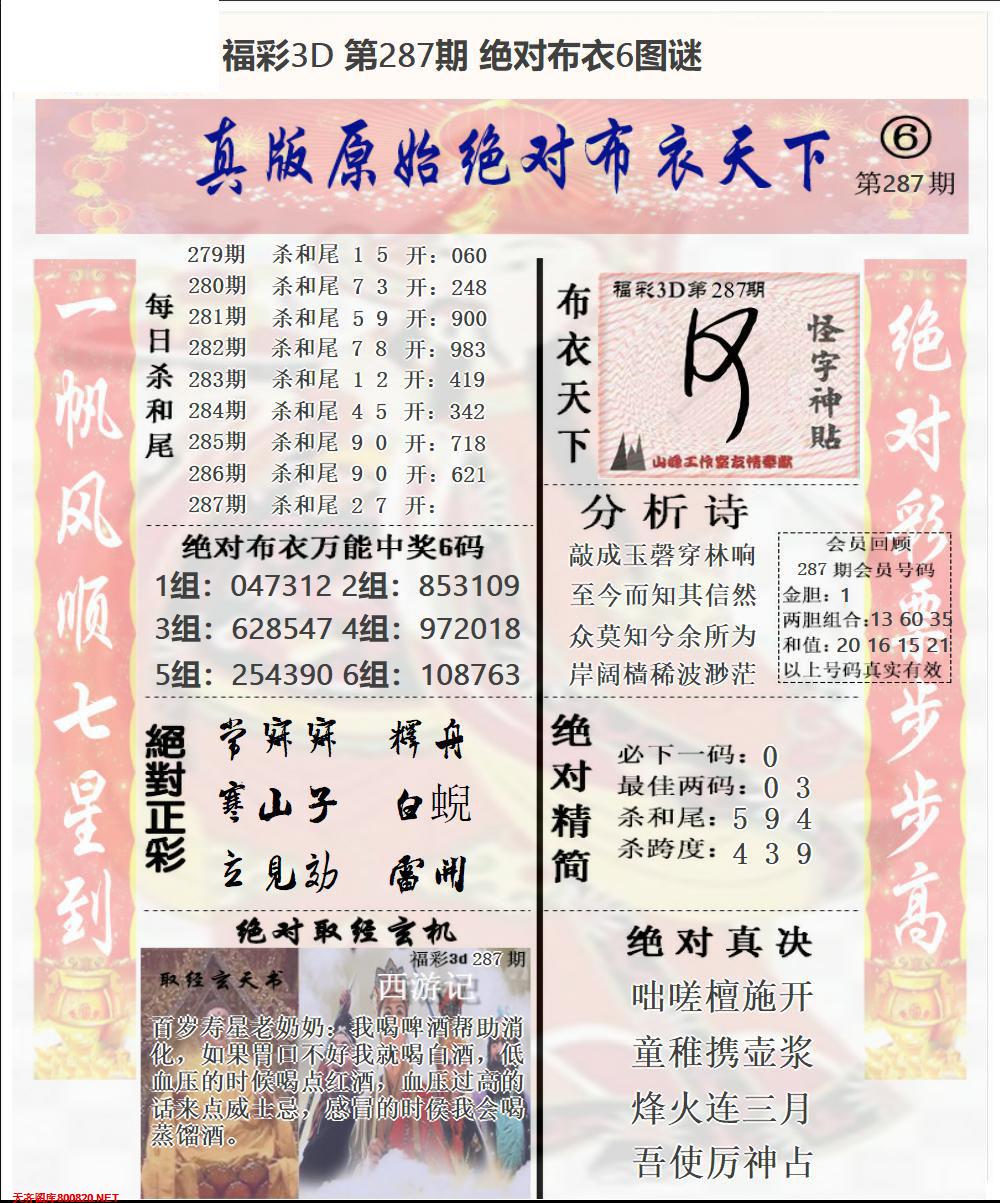 福彩3D 第287期 绝对布衣6图谜
真版原始绝对布衣天下
⑥
第287期
一帆风顺七星到
每日杀和尾
279期 杀和尾 1 5 开：060
280期 杀和尾 7 3 开：248
281期 杀和尾 5 9 开：900
282期 杀和尾 7 8 开：983
283期 杀和尾 1 2 开：419
284期 杀和尾 4 5 开：342
285期 杀和尾 9 0 开：718
286期 杀和尾 9 0 开：621
287期 杀和尾 2 7 开：
绝对布衣万能中奖6码
1组：047312 2组：853109
3组：628547 4组：972018
5组：254390 6组：108763
絕對正彩
常寐寐 釋舟
寒山子 白蜺
立見効 雷開
绝对取经玄机
福彩3d 287期
取经玄天书
西游记
百岁寿星老奶奶：我喝啤酒帮助消
化，如果胃口不好我就喝白酒，低
血压的时候喝点红酒，血压过高的
话来点威士忌，感冒的时侯我会喝
蒸馏酒。
布衣天下
福彩3D第287期
怪字神貼
山峰工作室友情奉献
分析诗
敲成玉磬穿林响
至今而知其信然
众莫知兮余所为
岸阔樯稀波渺茫
会员回顾
287期会员号码
金胆：1
两胆组合:13 60 35
和值：20 16 15 21
以上号码真实有效
绝对精简
必下一码：0
最佳两码：0 3
杀和尾：5 9 4
杀跨度：4 3 9
绝对真决
咄嗟檀施开
童稚携壶浆
烽火连三月
吾使厉神占
绝对彩票步步高
天齐图库800820.NET